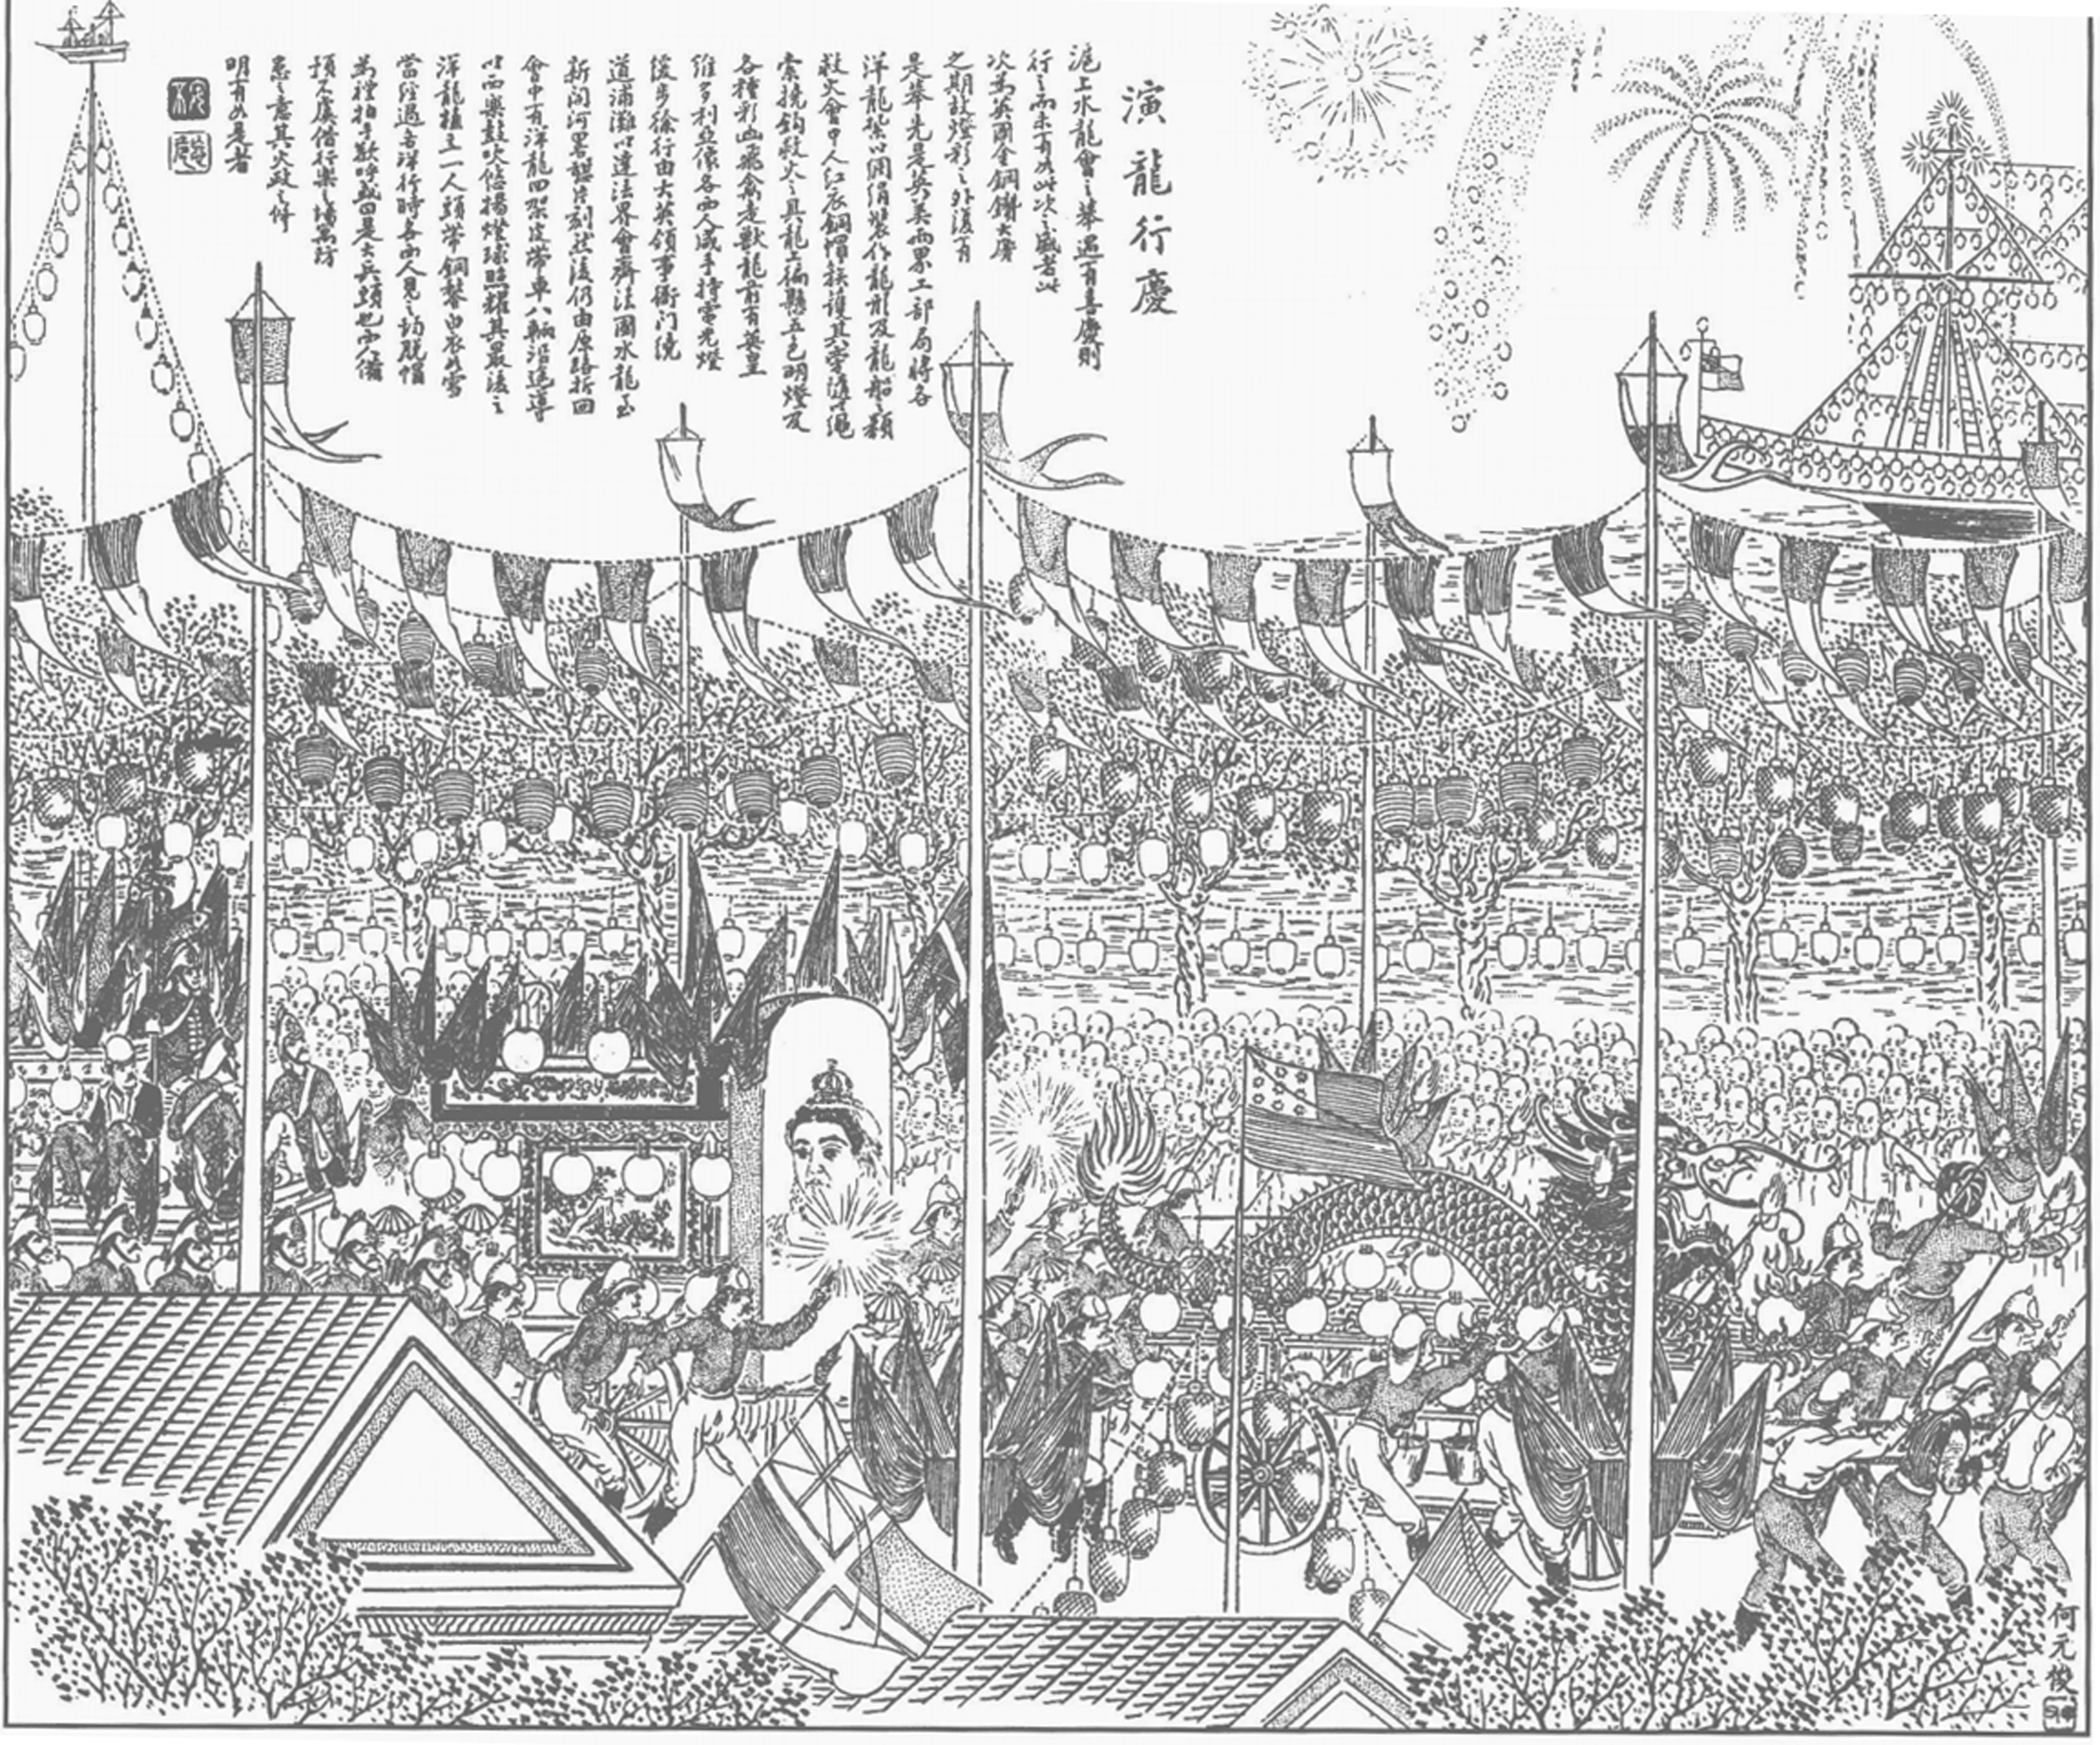 演龍行慶
滬上水龍會之舉遇有喜慶則
行之而未有如此次之盛者此
次為英國金鋼鑽大慶
之期故燈彩之外復有
是舉先是英美兩界工部局將各
洋龍紮以綢絹裝作龍形及龍船之類
救火會中人紅衣銅帽扶護其旁隨以繩
索撓鈎救火之具龍上徧懸五色明燈及
各種彩画飛禽走獸龍前有英皇
維多利亞像各西人咸手持電光燈
緩步徐行由大英領事衙門繞
道浦灘以達法界會齊法國水龍至
新開河畧憩片刻然後仍由原路折回
會中有洋龍四架皮帶車八輛沿途導
以西樂鼓吹悠揚燈球照耀其最後之
洋龍植立一人頭帶銅盔白衣如雪
當經過各洋行時各西人見之均脫帽
為禮拍手歡呼或曰是大兵頭也西人備
預不虞借行樂之場寓防
患之意其火政之修
明有如是者
何元俊